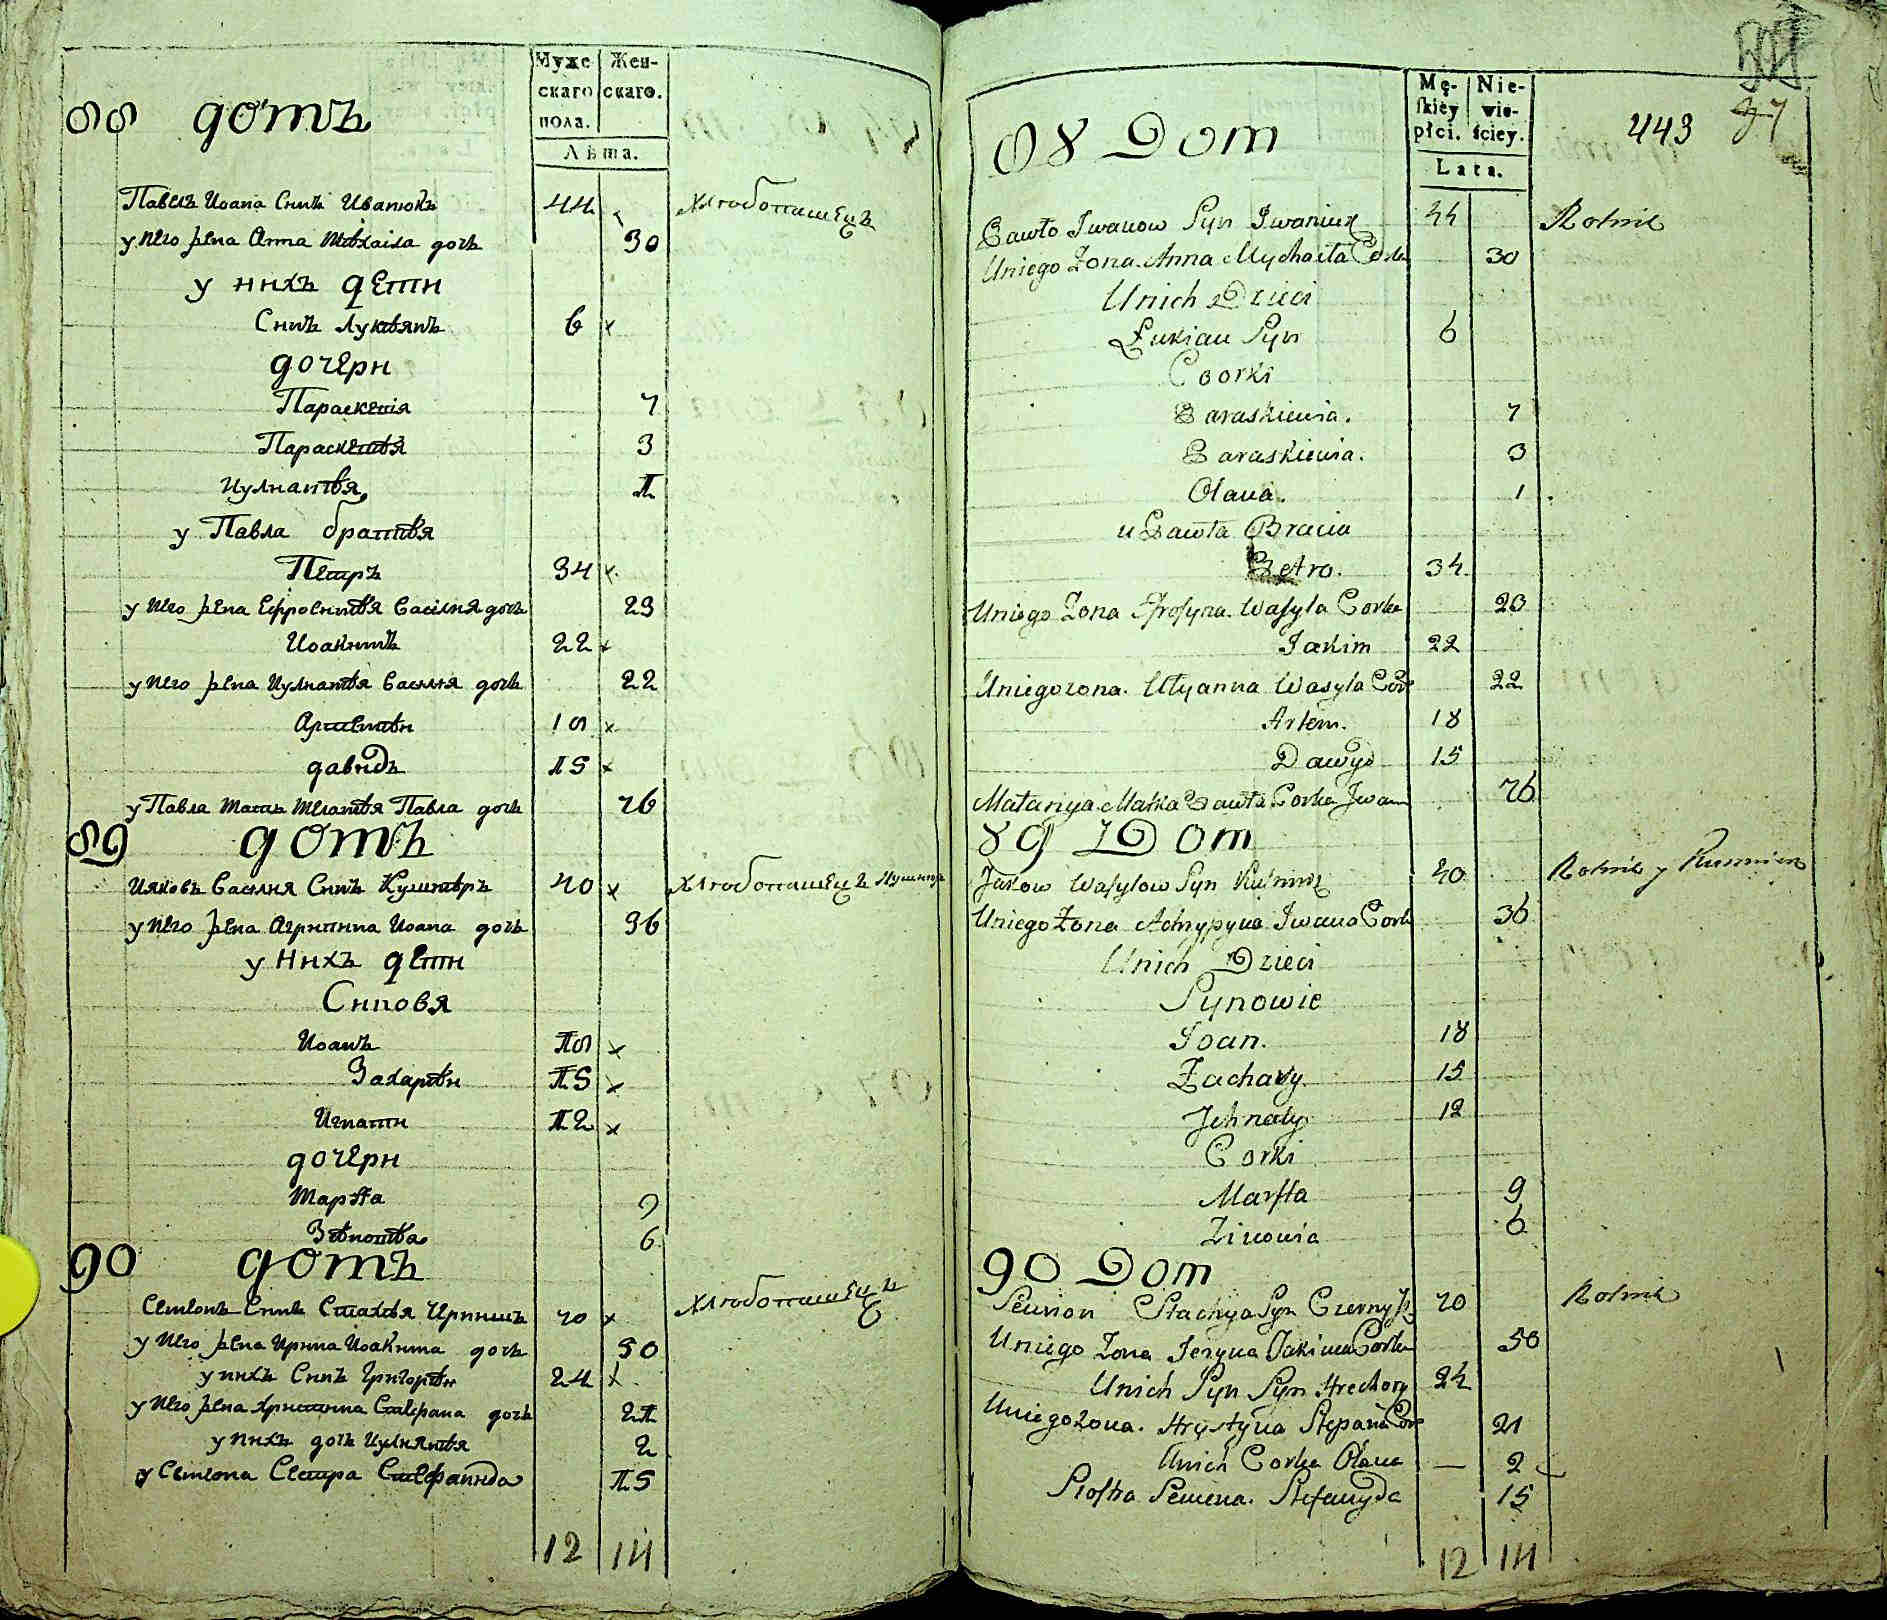 Муже Жен-
скаго скаго.
пола.
Лѣта.
88 домъ
Павелъ Иоана Синъ Иванюкъ 44 хлѣбопашецъ
у него жена Анна Михаила дочь 30
у нихъ дети
Синъ Лукиянъ 6 x
дочери
Параскевія 7
Параскевия 3
Иулиания 1
у Павла братия
Петръ 34 x
у него жена Ефросиния Василия дочь 23
Иоакимъ 22 x
у него жена Иулиания Василия дочь 22
Артемий 18 x
давидъ 15 x
у Павла мать Мелания Павла дочь 76
89 домъ
Ияковъ Василия Синъ 40 x хлѣбопашецъ
у него жена Агрипина Иоана дочь 36
у нихъ дети
Синовя
Иоанъ 18 x
Захарий 15 x
Игнатий 12 x
дочери
Марѳа 9
Зѣновия 6
90 домъ
Семионъ Синъ Стахия 70 x хлѣбопашецъ
у него жена Ирина Иоакима дочь 50
у нихъ Синъ Григорий 24 x
у него жена Христина Стефана дочь 21
у нихъ дочь Иулияния 2
у Семиона Сестра Стефанида 15
12 14
Mę- Nie-
skiey wie-
płci. ściey.
Lata.
443 97
88 Dom
Pawło Iwanow Syn Iwaniuk 44 Rolnik
Uniego Żona Anna Mychaiła Corka 30
Unich Dzieci
Łukian Syn 6
Coorki
Paraskiewia. 7
Paraskiewia. 3
Olana. 1
u Pawła Bracia
Petro. 34
Uniego Żona Frosyna. Wasyla Corka 23
Jakim 22
Uniego zona. Ulyanna Wasyla Cor 22
Artem. 18
Dawyd 15
Małanya Matka Pawła Corka Iwan 76
89 Dom
Jakow Wasylow Syn 40 Rolnik y Kusnierz
Uniego Żona Achrypyna Iwana Corka 36
Unich Dzieci
Synowie
Joan. 18
Zachary. 15
Jehnaty 12
Corki
Marfta 9
Zinowia 6
90 Dom
Semion Stachya Syn 70 Rolnik
Uniego Żona Jeryna Jakima Corka 50
Unich Syn Syn Hrechory 24
Uniego zona. Hrystyna Stepana Cor 21
Unich Corka Olana — 2
Siostra Semena. Stefanyda 15
12 14